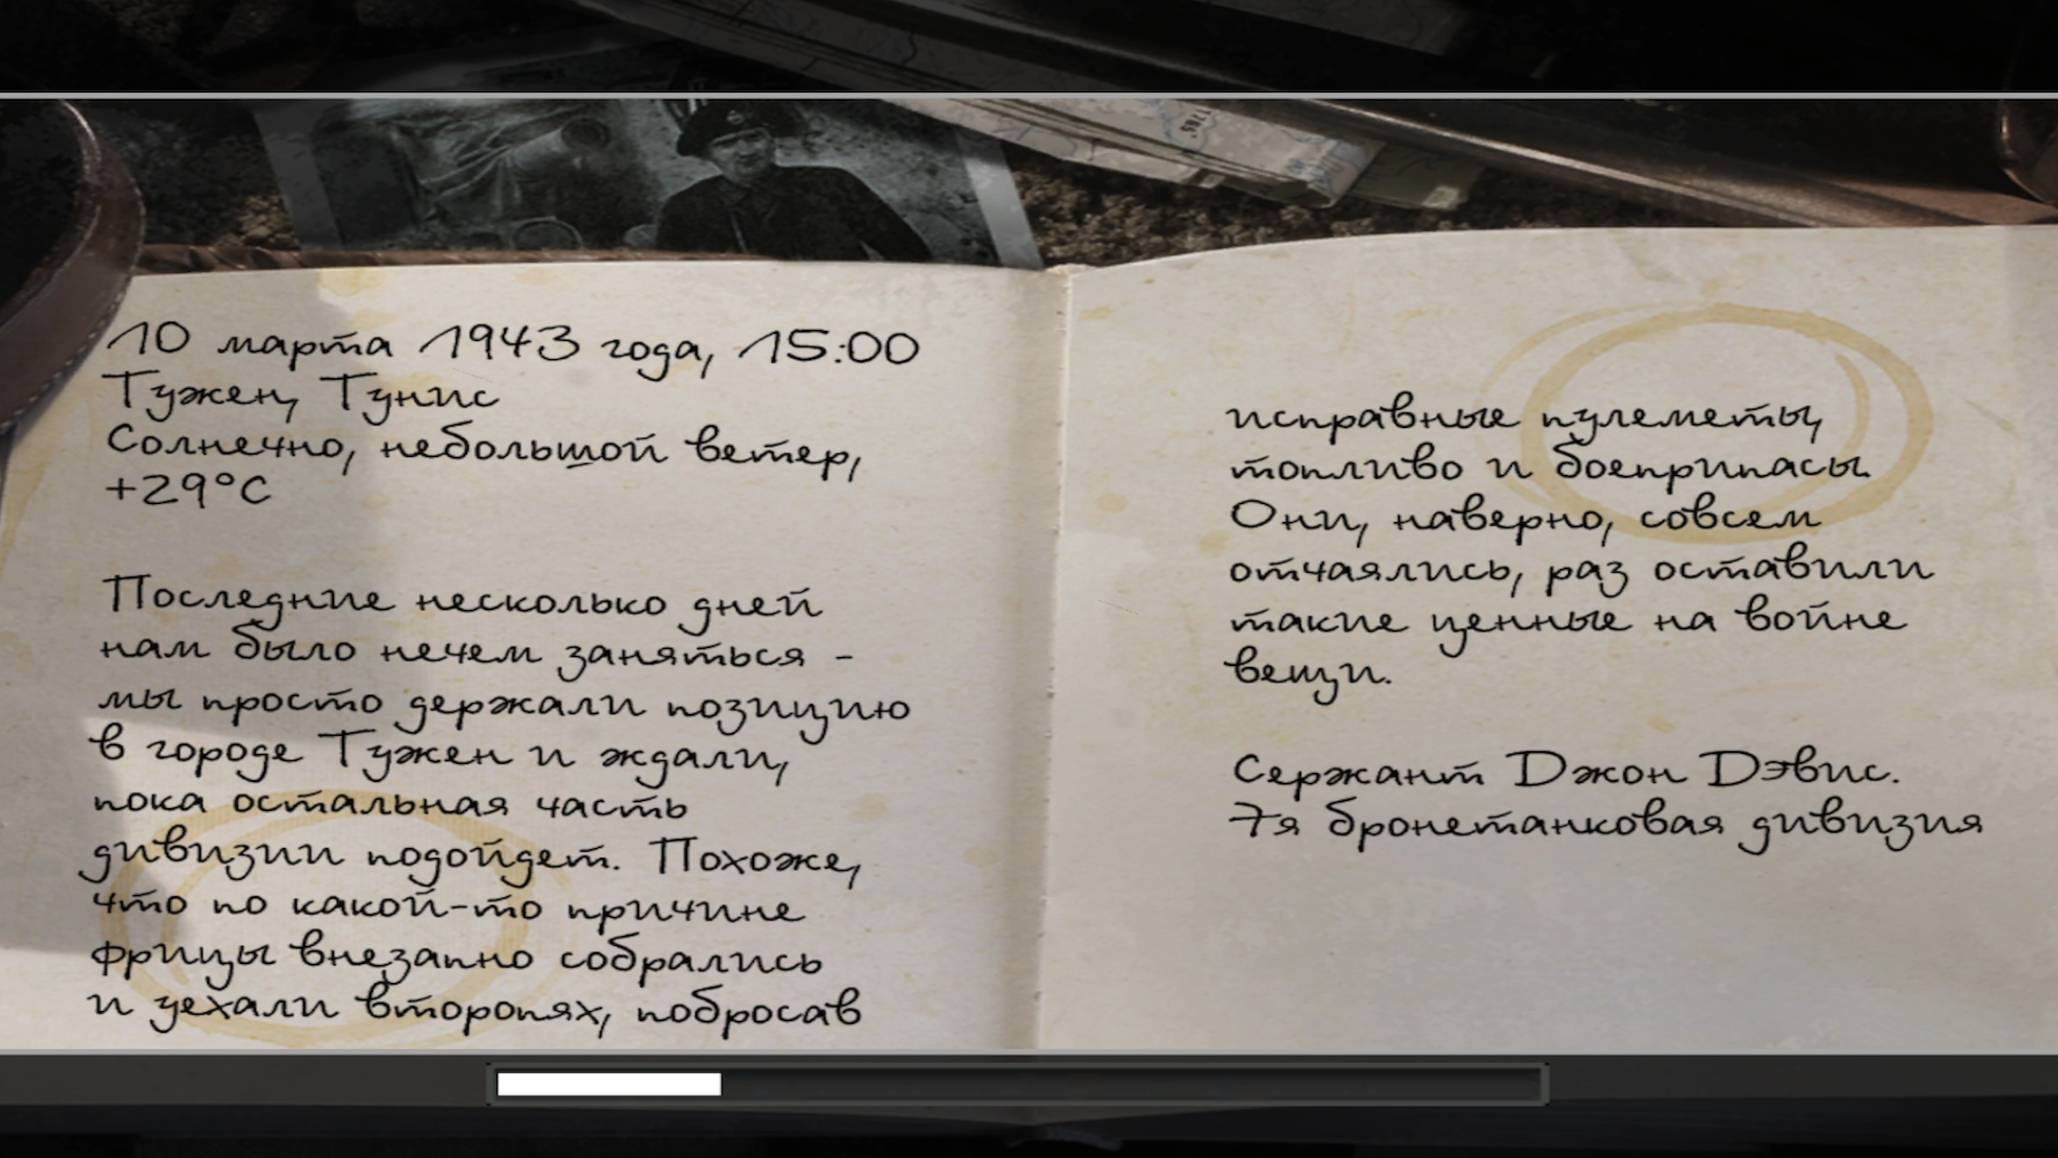 10 марта 1943 года, 15:00
Тужен, Тунис
Солнечно, небольшой ветер,
+29°C
Последние несколько дней
нам было нечем заняться -
мы просто держали позицию
в городе Тужен и ждали,
пока остальная часть
дивизии подойдет. Похоже,
что по какой-то причине
фрицы внезапно собрались
и уехали второпях, побросав
исправные пулеметы,
топливо и боеприпасы.
Они, наверно, совсем
отчаялись, раз оставили
такие ценные на войне
вещи.
Сержант Джон Дэвис.
7я бронетанковая дивизия